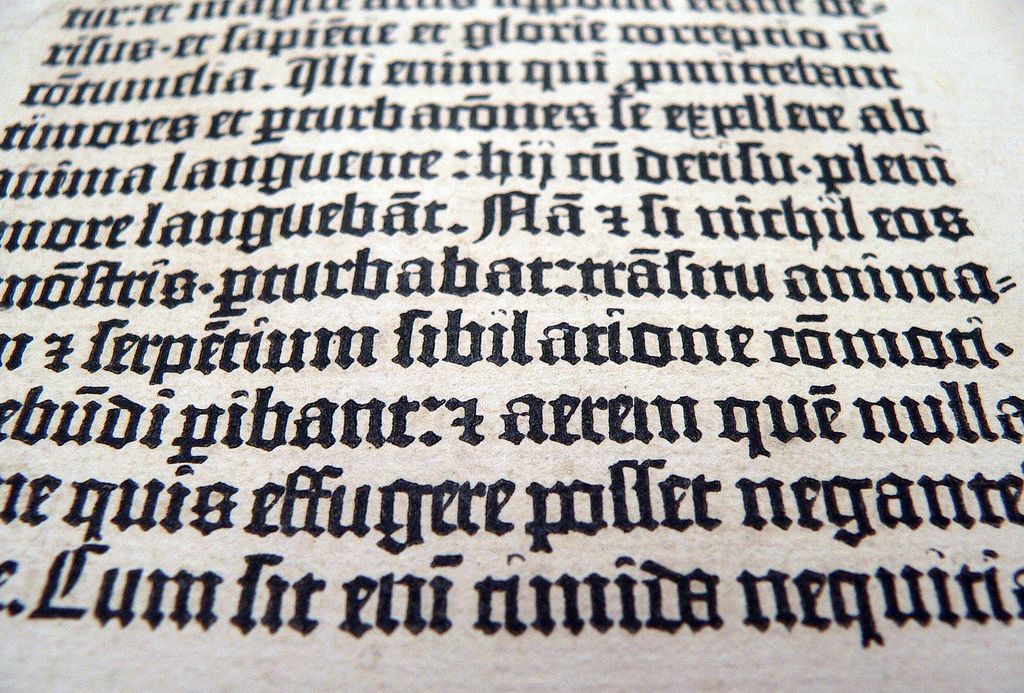 tur: et magice artis appositi erant de-
risus· et sapiētie et glorie correptio cū
cōtumelia. Illi enim qui ꝓmittebant
timores et ꝑturbacōnes se expellere ab
anima languente: hij cū derisu· pleni
more languebāt. Nā ⁊ si nichil eos
mōstris· ꝑturbabat: trāsitu anima-
m ⁊ serpētium sibilatione cōmoti·
ebūdi ꝑibant: ⁊ aerem quē nulla
ne quis effugere posset negante
e. Cum sit enī timida nequitia